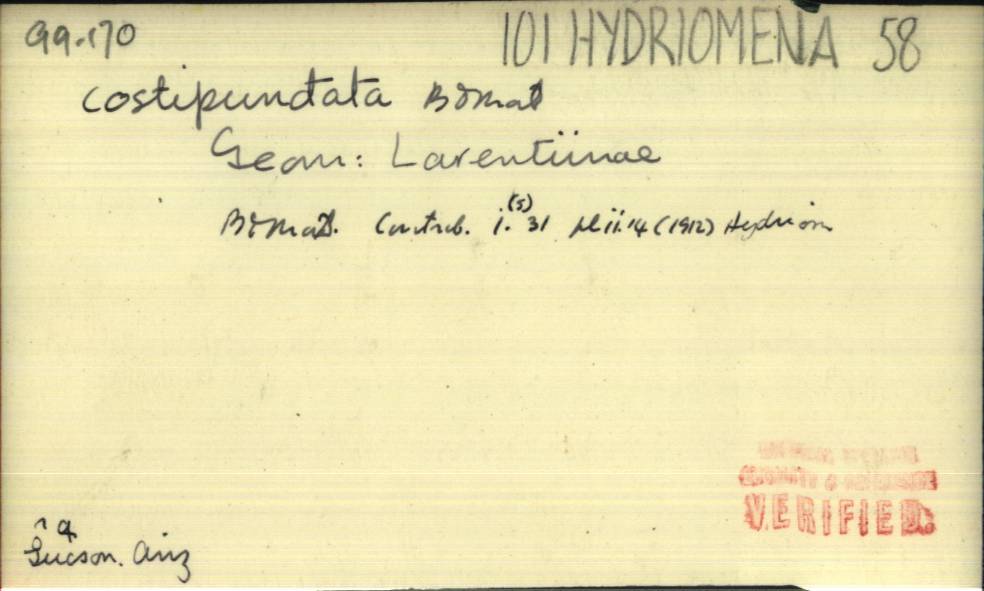 99.170
101 HYDRIOMENA 58
costipunctata B&McD
Geom: Larentiinae
B&McD. Contrib. i.(5) 31 pl ii.14 (1912) Hydriom
VERIFIED
Tucson. Ariz